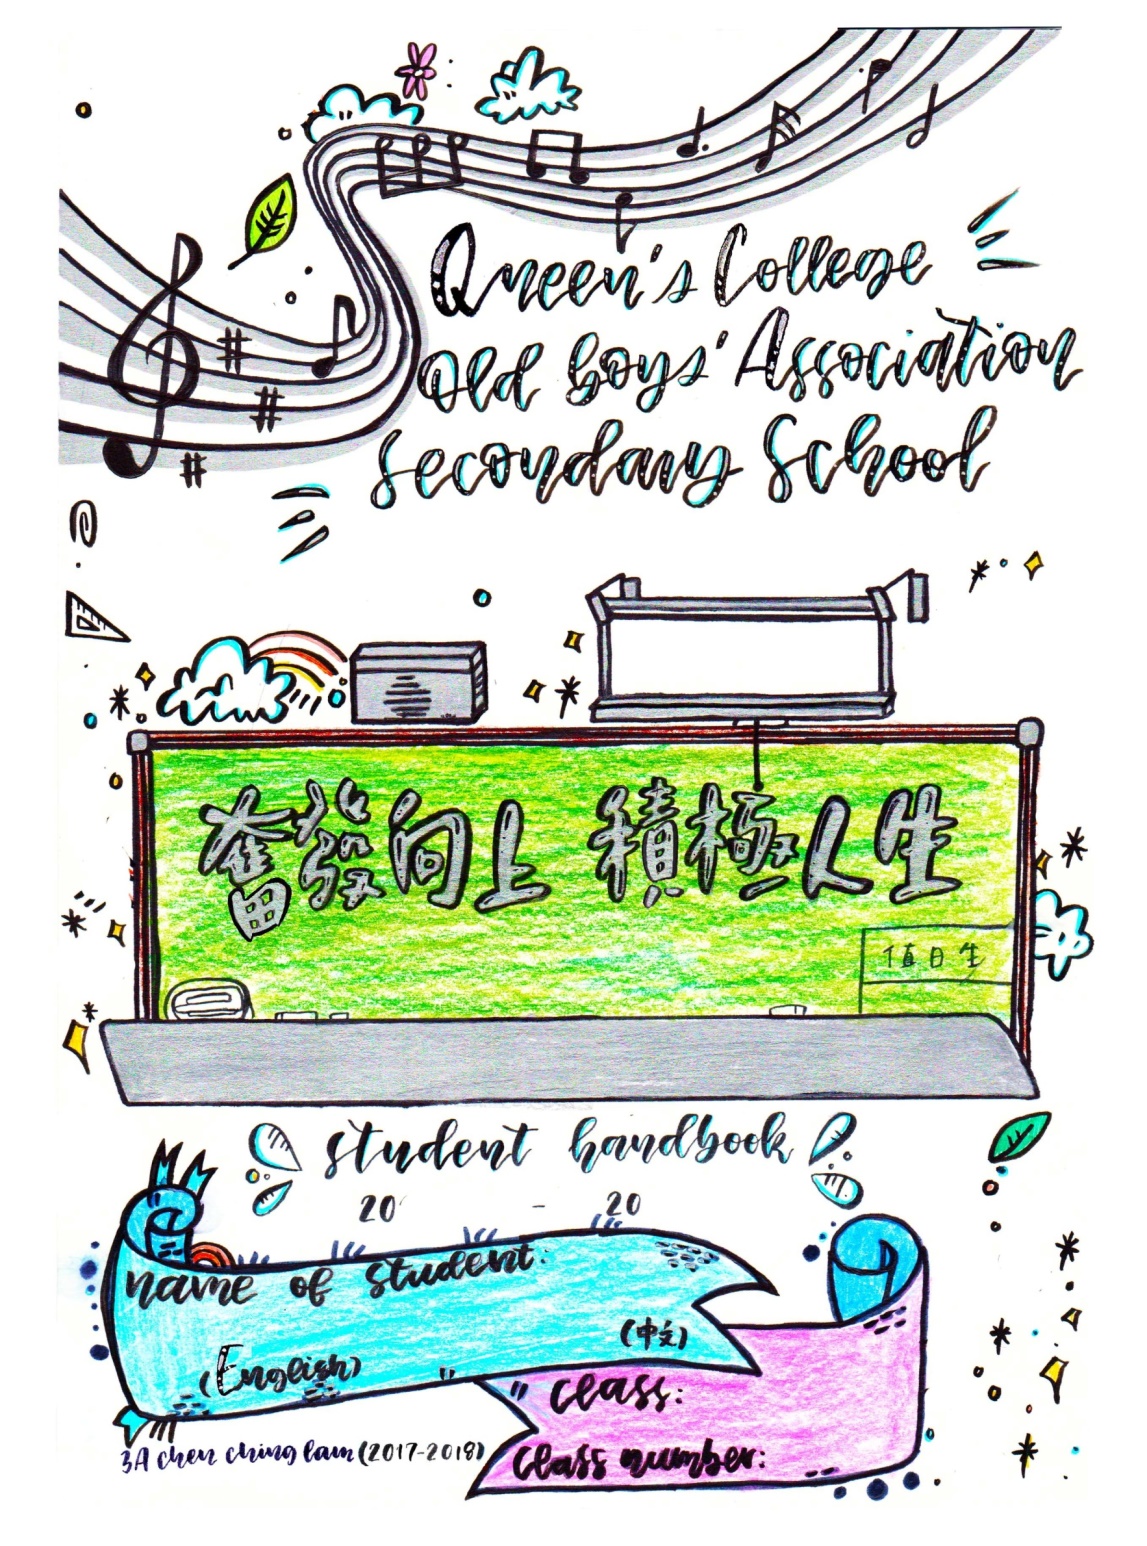 Queen's College
Old Boys' Association
Secondary School
奮發向上 積極人生
值日生
student handbook
20 - 20
name of student:
(中文)
(English)
class:
class number:
3A chen ching lam (2017-2018)